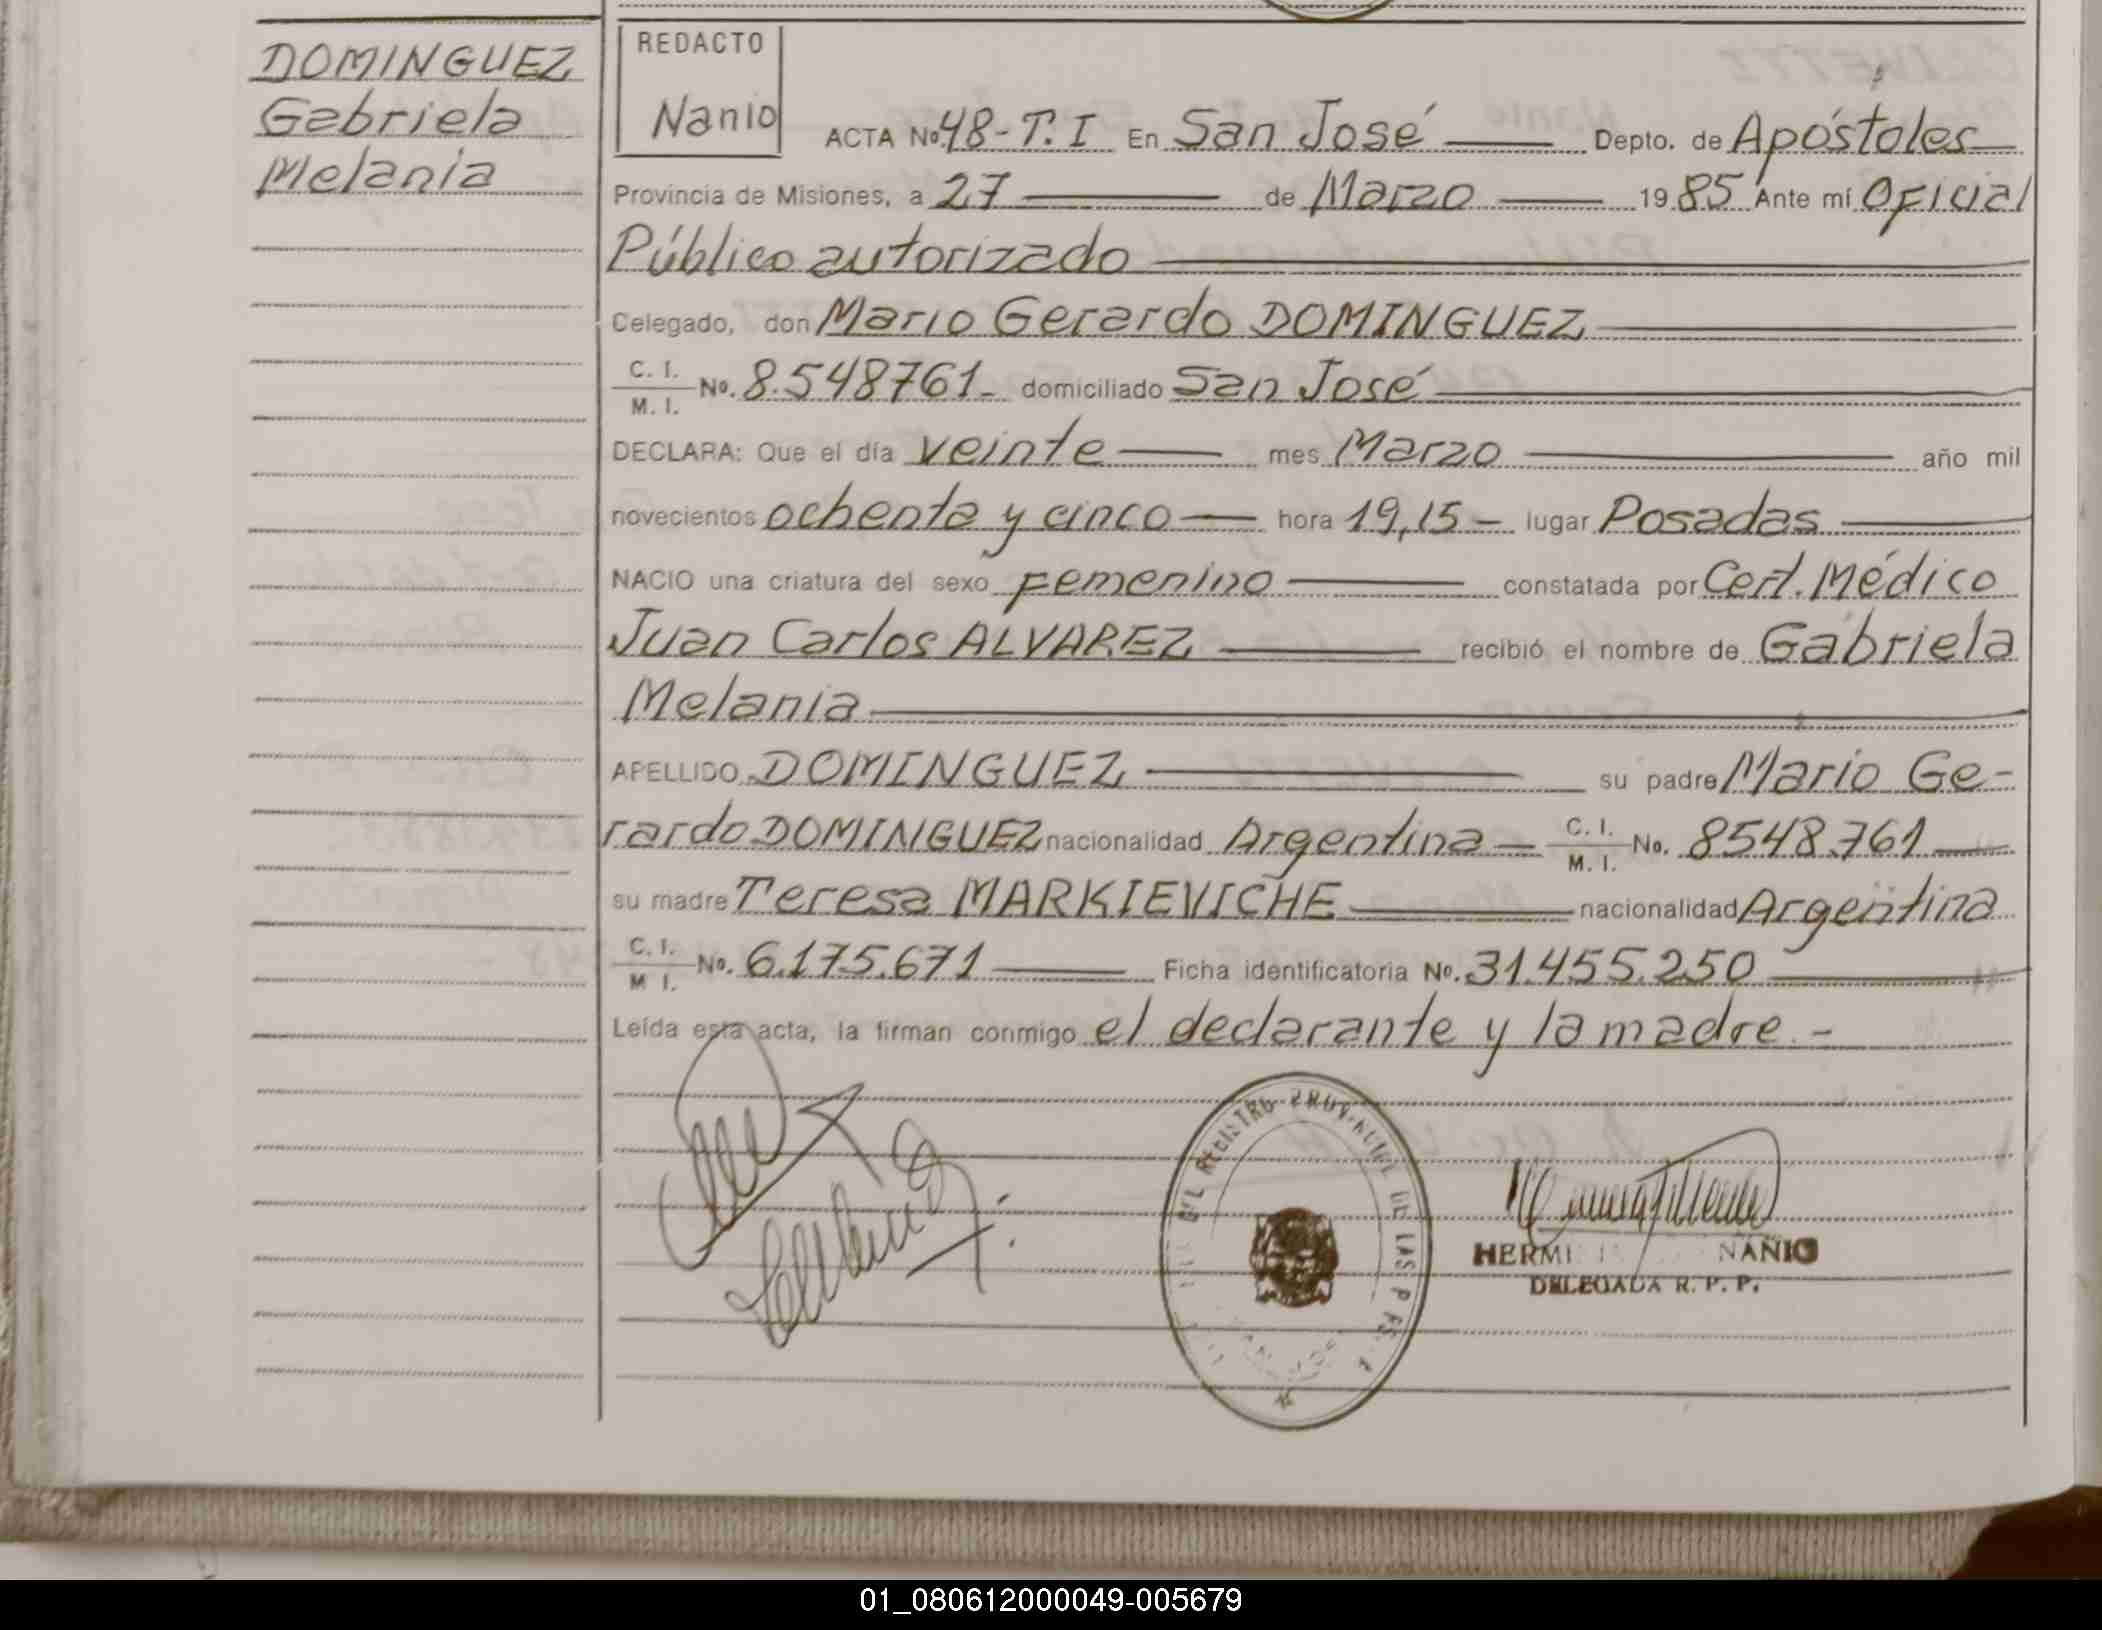 DOMINGUEZ
Gabriela
Melania
REDACTO
Nanio
ACTA No. 48-T.I En San José Depto. de Apóstoles
Provincia de Misiones, a 27 de Marzo 1985 Ante mí Oficial
Público autorizado
Celegado, don Mario Gerardo DOMINGUEZ
C. I.
M. I. No. 8.548761- domiciliado San José
DECLARA: Que el día veinte mes Marzo año mil
novecientos ochenta y cinco hora 19,15- lugar Posadas
NACIO una criatura del sexo femenino constatada por Cert. Médico
Juan Carlos ALVAREZ recibió el nombre de Gabriela
Melania
APELLIDO DOMINGUEZ su padre Mario Ge-
rardo DOMINGUEZ nacionalidad Argentina C. I. M. I. No. 8548.761
su madre Teresa MARKIEVICHE nacionalidad Argentina
C. I.
M I. No. 6.175.671 Ficha identificatoria No. 31.455.250
Leída esta acta, la firman conmigo el declarante y la madre.-
REGISTRO PROV. DE LAS P
HERMI NAÑIO
DELEGADA R. P. P.
01_080612000049-005679